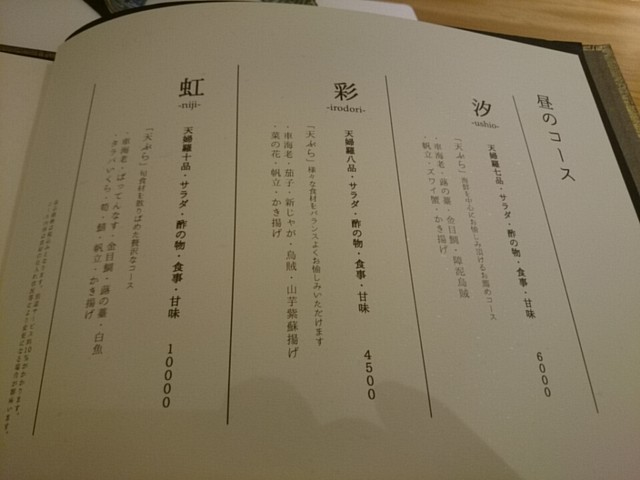 昼のコース
汐
-ushio-
天婦羅七品・サラダ・酢の物・食事・甘味
6000
「天ぷら」海鮮を中心にお愉しみ頂けるお薦めコース
・車海老・蕗の薹・金目鯛・障泥烏賊
・帆立・ズワイ蟹・かき揚げ
彩
-irodori-
天婦羅八品・サラダ・酢の物・食事・甘味
4500
「天ぷら」様々な食材をバランスよくお愉しみいただけます
・車海老・茄子・新じゃが・烏賊・山芋紫蘇揚げ
・菜の花・帆立・かき揚げ
虹
-niji-
天婦羅十品・サラダ・酢の物・食事・甘味
10000
「天ぷら」旬食材を散りばめた贅沢なコース
・車海老・ばってんなす・金目鯛・蕗の薹・白魚
・タラバいくら・筍・鯛・帆立・かき揚げ